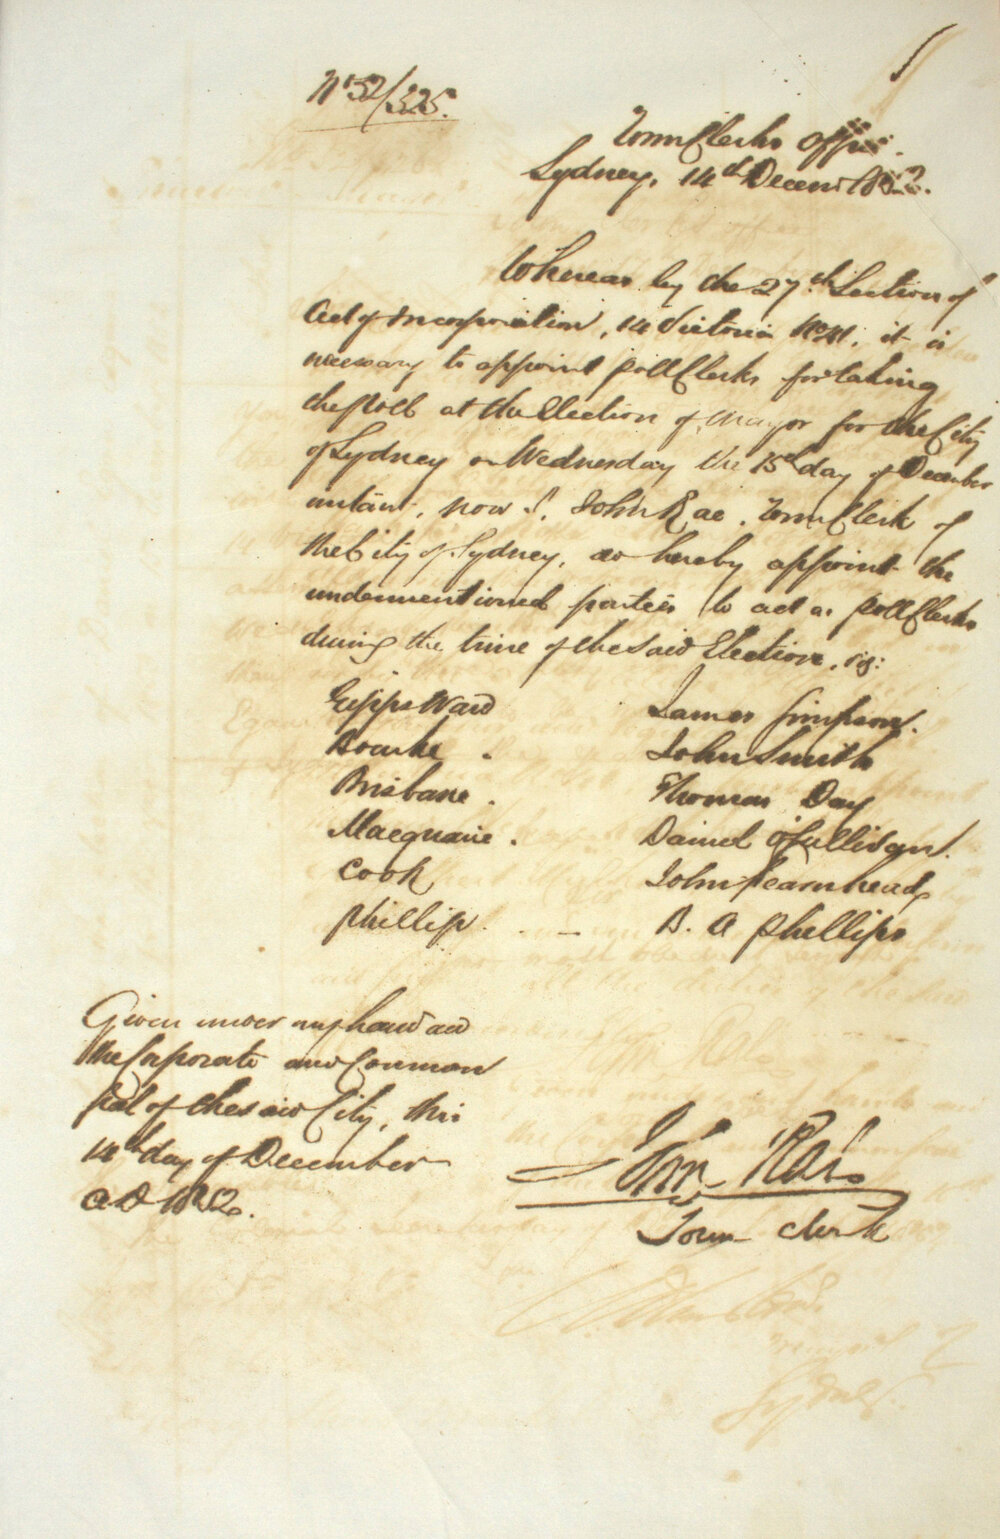 No 52/325.
Town Clerks Office.
Sydney, 14th Decemr 1852.
Whereas by the 27th Section of
Act of Incorporation, 14 Victoria No 41, it is
necessary to appoint Poll Clerks for taking
the Poll at the Election of Mayor for the City
of Sydney on Wednesday the 15th day of December
instant, now I, John Rae, Town Clerk of
the City of Sydney, do hereby appoint the
undermentioned parties to act as Poll Clerks
during the time of the said Election, viz:
Gipps Ward James Simpson.
Bourke. John Smith
Brisbane. Thomas Day
Macquarie. Daniel O'Sullivan.
Cook John Fearnhead
Phillip. . - B. A Phillips
Given under my hand and
the Corporate and Common
Seal of the said City, this
14th day of December
A.D 1852.
John Rae
Town Clerk